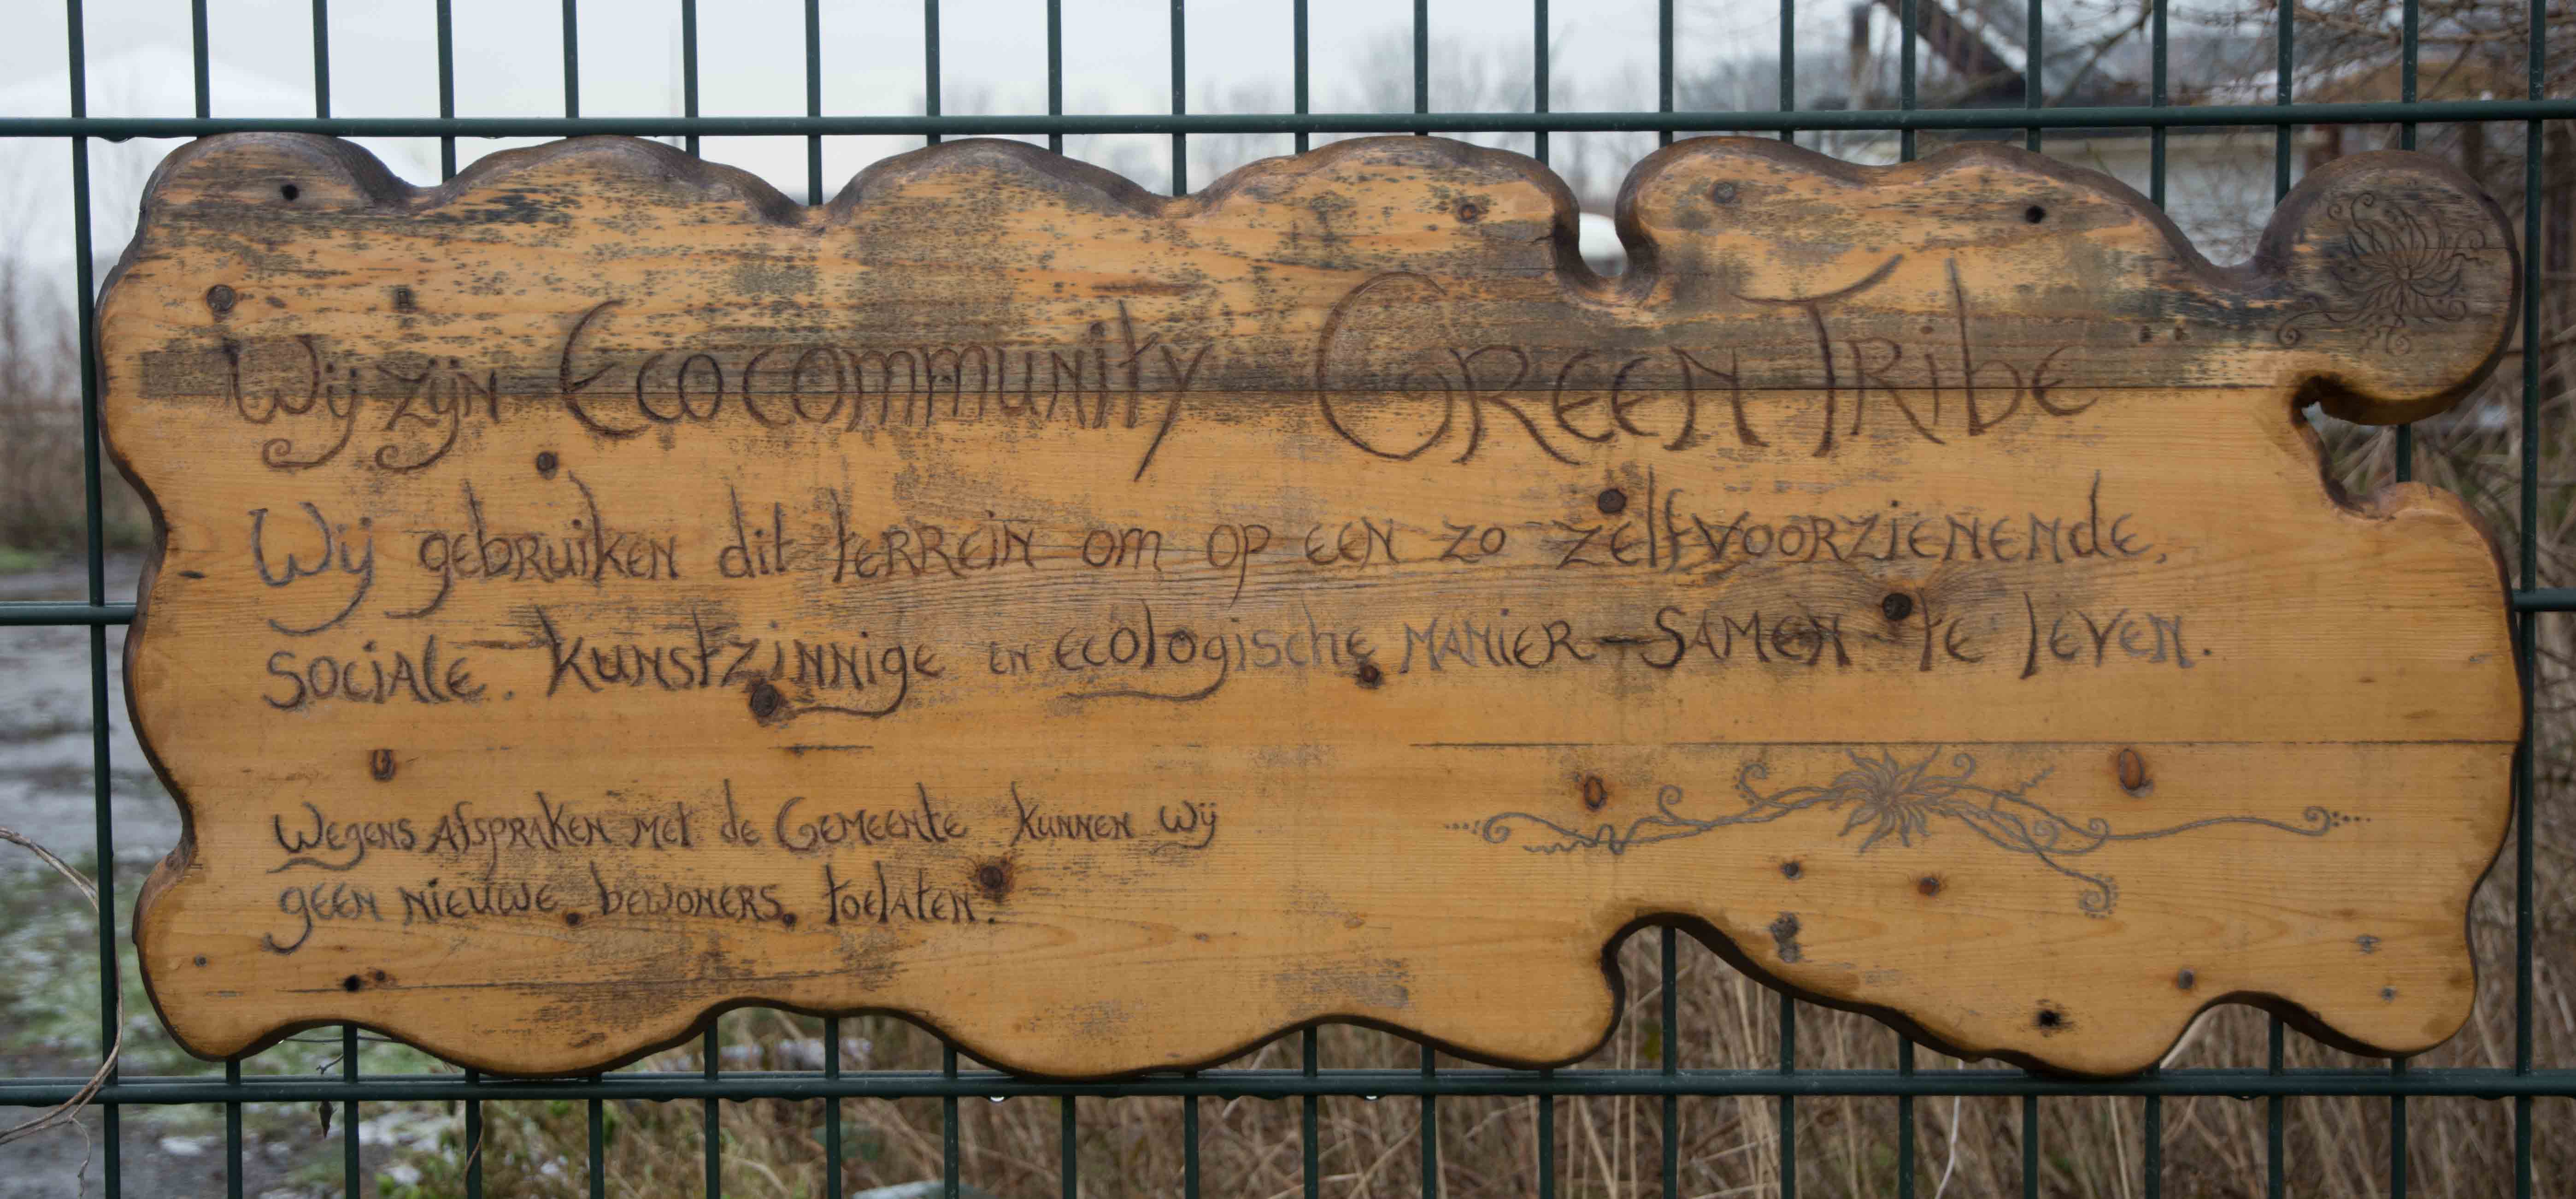 Wij zijn Ecocommunity Green Tribe
Wij gebruiken dit terrein om op een zo zelfvoorzienende,
sociale. kunstzinnige en ecologische manier - samen te leven.
Wegens afspraken met de Gemeente kunnen wij
geen nieuwe bewoners toelaten.